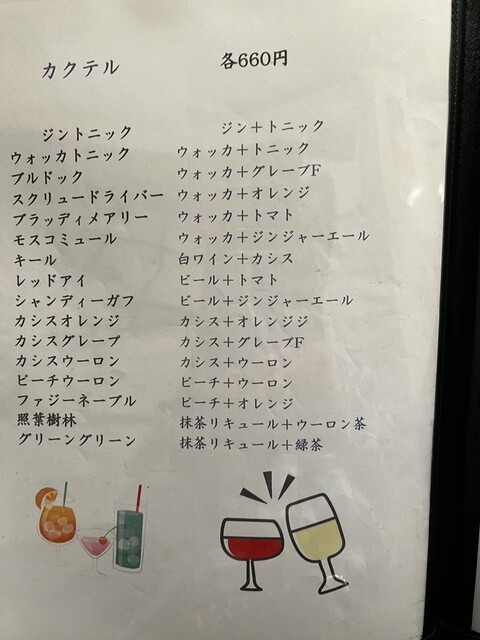 カクテル 各660円
ジントニック ジン＋トニック
ウォッカトニック ウォッカ＋トニック
ブルドック ウォッカ＋グレープF
スクリュードライバー ウォッカ＋オレンジ
ブラッディメアリー ウォッカ＋トマト
モスコミュール ウォッカ＋ジンジャーエール
キール 白ワイン＋カシス
レッドアイ ビール＋トマト
シャンディーガフ ビール＋ジンジャーエール
カシスオレンジ カシス＋オレンジジ
カシスグレープ カシス＋グレープF
カシスウーロン カシス＋ウーロン
ピーチウーロン ピーチ＋ウーロン
ファジーネーブル ピーチ＋オレンジ
照葉樹林 抹茶リキュール＋ウーロン茶
グリーングリーン 抹茶リキュール＋緑茶